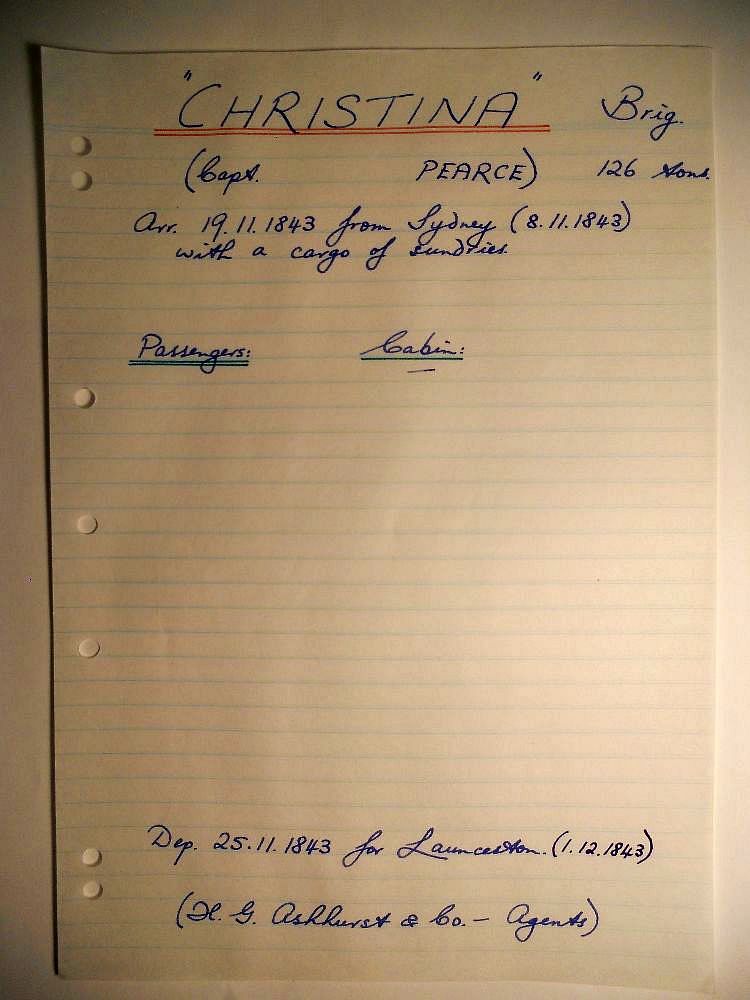 "CHRISTINA" Brig.
(Capt. PEARCE) 126 tons.
Arr. 19.11.1843 from Sydney (8.11.1843)
with a cargo of sundries.
Passengers: Cabin:
—
Dep. 25.11.1843 for Launceston. (1.12.1843)
(H. G. Ashhurst & Co. — Agents)